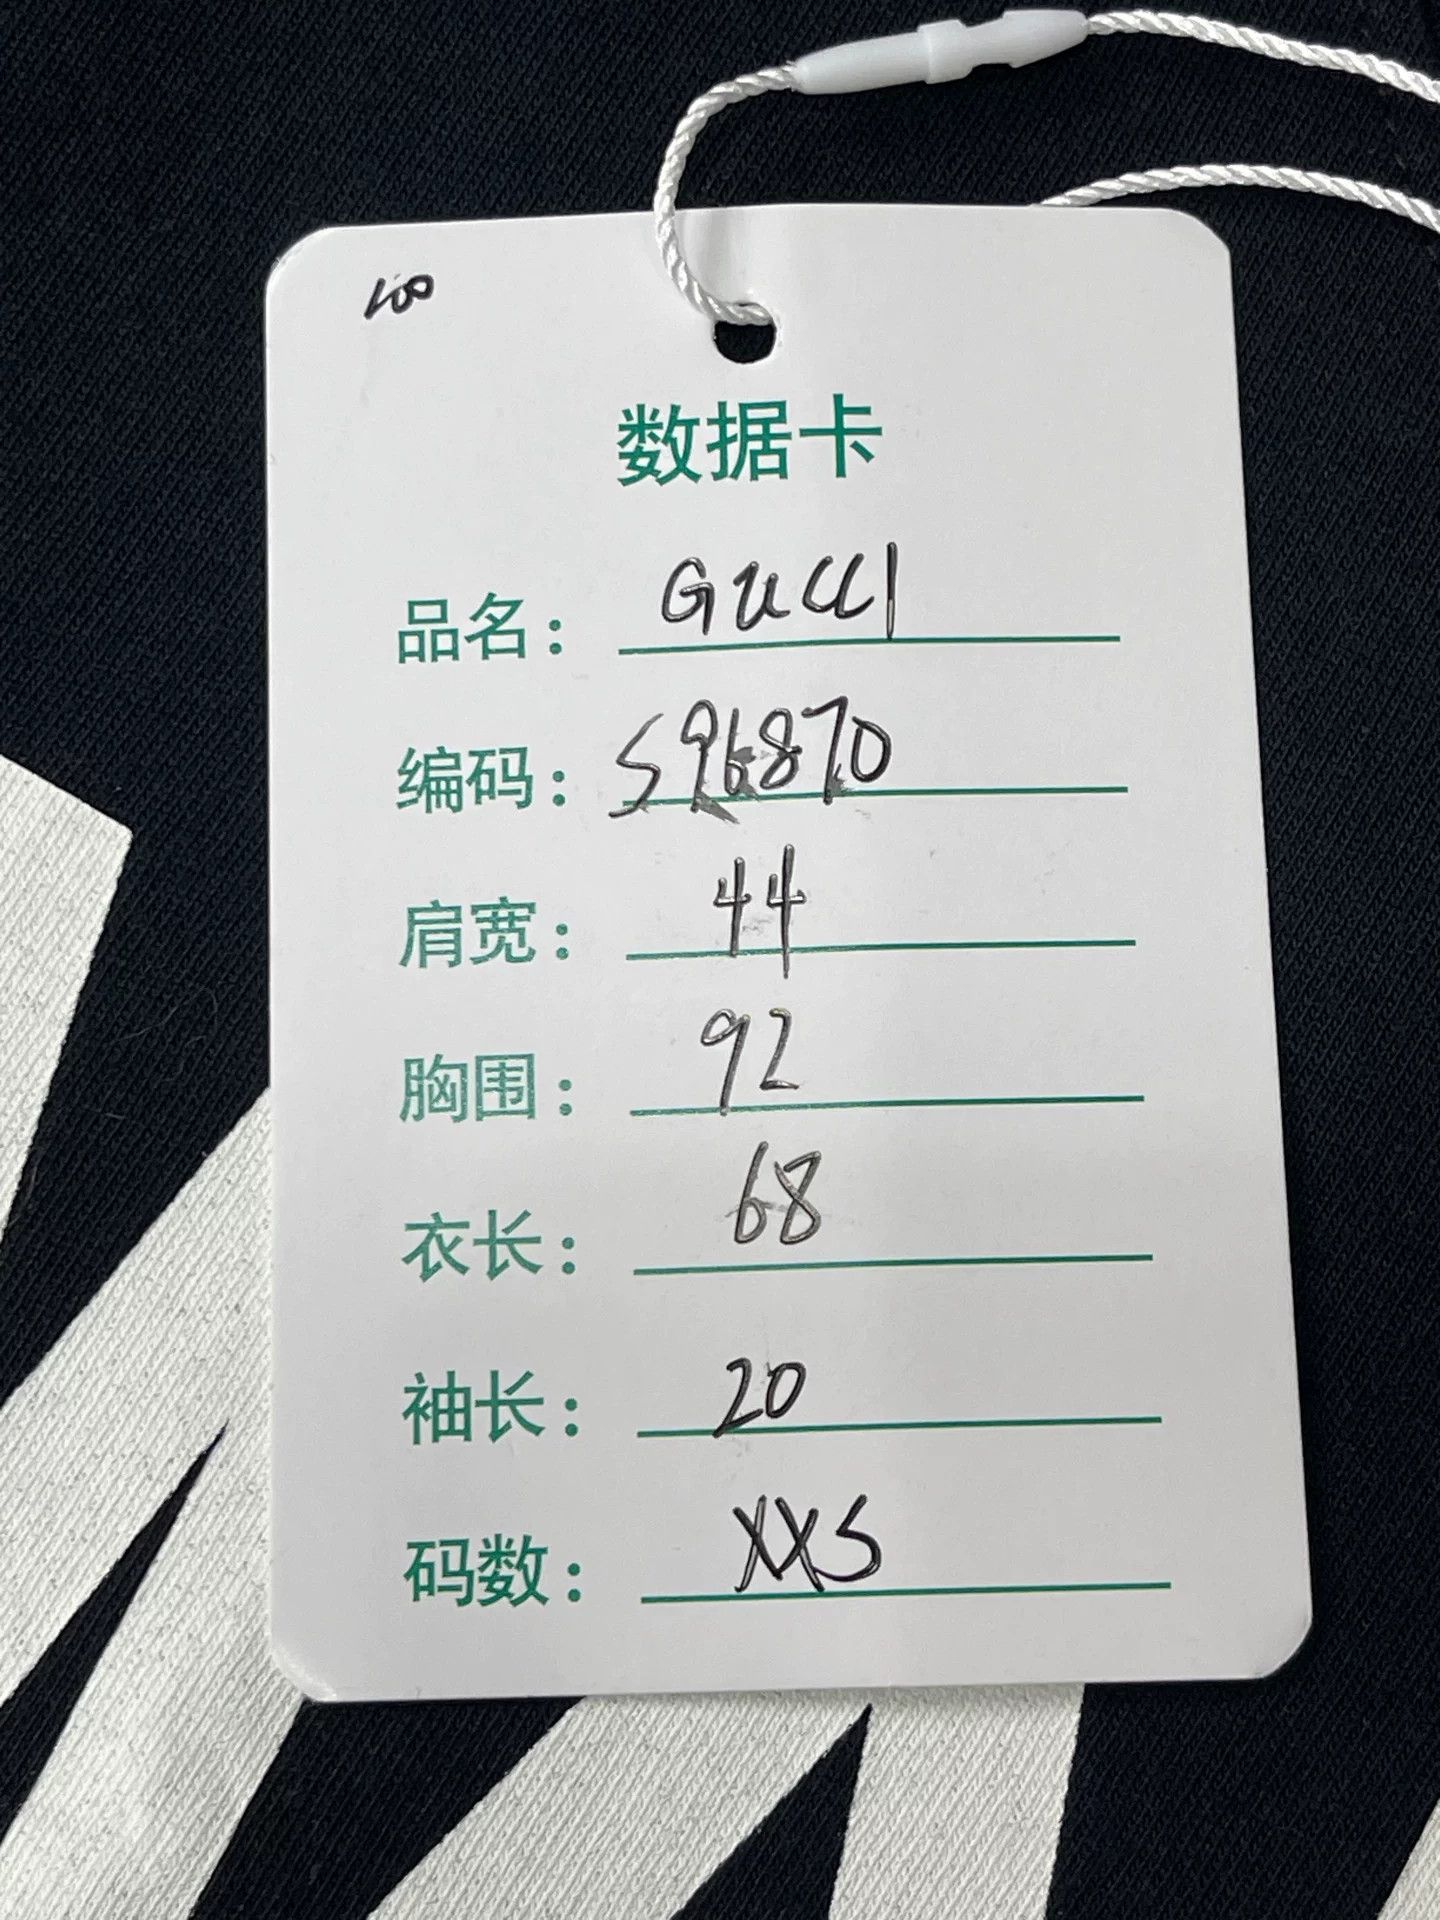 100
数据卡
品名： GUCCI
编码： 596870
肩宽： 44
胸围： 92
衣长： 68
袖长： 20
码数： XXS